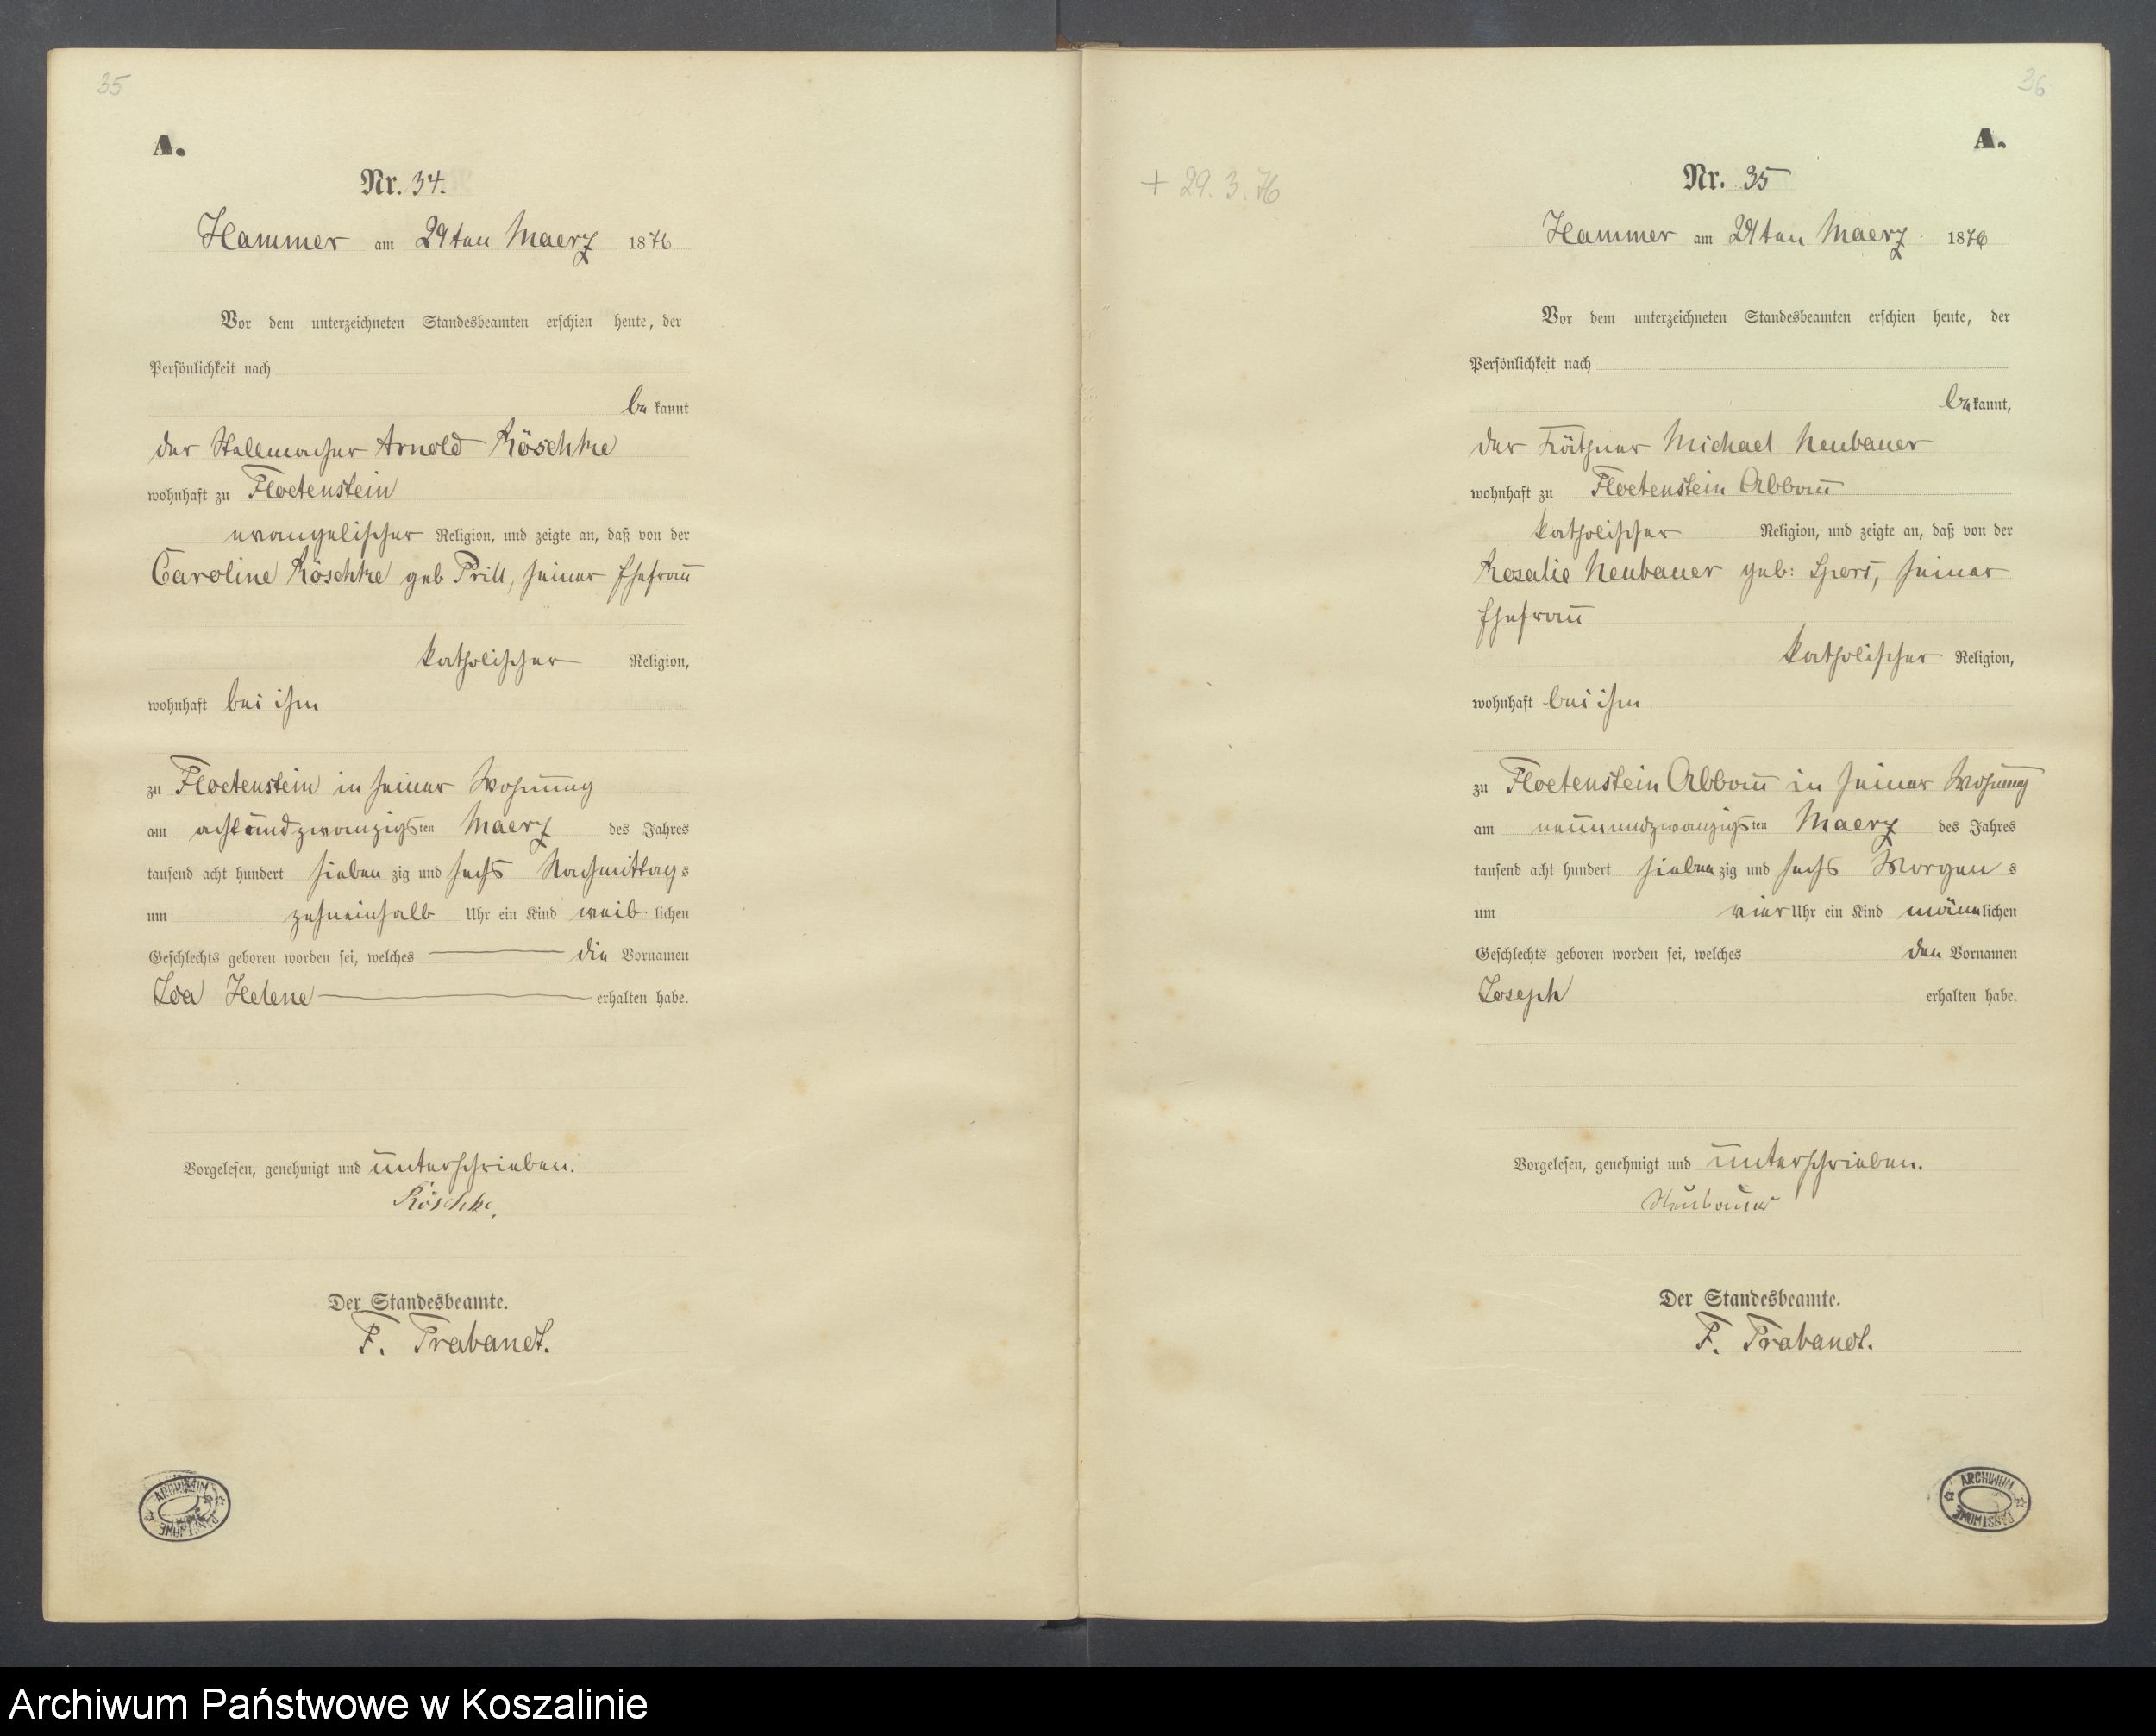 35
A.
Nr. 34.
Hammer am 29ten Maerz 1876
Vor dem unterzeichneten Standesbeamten erschien heute, der
Persönlichkeit nach
be kannt
der Stellmacher Arnold Röschke
wohnhaft zu Floetenstein
evangelischer Religion, und zeigte an, daß von der
Caroline Röschke geb Prill, seiner Ehefrau
katholischer Religion,
wohnhaft bei ihm
zu Floetenstein in seiner Wohnung
am achtundzwanzigsten Maerz des Jahres
tausend acht hundert sieben zig und sechs Nachmittags
um zehneinhalb Uhr ein Kind weib lichen
Geschlechts geboren worden sei, welches die Vornamen
Helene erhalten habe.
Vorgelesen, genehmigt und unterschrieben.
Röschke.
Der Standesbeamte.
F. Trabandt.
ARCHIWUM PAŃSTWOWE
36
A.
+ 29. 3. 76
Nr. 35
Hammer am 29ten Maerz 1876
Vor dem unterzeichneten Standesbeamten erschien heute, der
Persönlichkeit nach
bekannt,
der Käthner Michael Neubauer
wohnhaft zu Floetenstein Abbau
katholischer Religion, und zeigte an, daß von der
Rosalie Neubauer geb: seiner
Ehefrau
katholischer Religion,
wohnhaft bei ihm
zu Floetenstein Abbau in seiner Wohnung
am neunundzwanzigsten Maerz des Jahres
tausend acht hundert siebenzig und sechs Morgens
um vier Uhr ein Kind männlichen
Geschlechts geboren worden sei, welches den Vornamen
Joseph erhalten habe.
Vorgelesen, genehmigt und unterschrieben.
Neubauer
Der Standesbeamte.
F. Trabandt.
ARCHIWUM PAŃSTWOWE
Archiwum Państwowe w Koszalinie